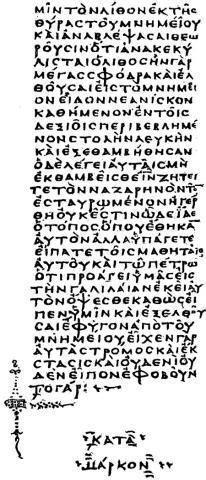 ΜΙΝΤΟΝΛΙΘΟΝΕΚΤΗϹ
ΘΥΡΑϹΤΟΥΜΝΗΜΕΙΟΥ
ΚΑΙΑΝΑΒΛΕΨΑϹΑΙΘΕΩ
ΡΟΥϹΙΝΟΤΙΑΝΑΚΕΚΥ
ΛΙϹΤΑΙΟΛΙΘΟϹΗΝΓΑΡ
ΜΕΓΑϹϹΦΟΔΡΑΚΑΙΕΛ
ΘΟΥϹΑΙΕΙϹΤΟΜΝΗΜΕΙ
ΟΝΕΙΔΟΝΝΕΑΝΙϹΚΟΝ
ΚΑΘΗΜΕΝΟΝΕΝΤΟΙϹ
ΔΕΞΙΟΙϹΠΕΡΙΒΕΒΛΗΜΕ
ΝΟΝϹΤΟΛΗΝΛΕΥΚΗΝ
ΚΑΙΕΞΕΘΑΜΒΗΘΗϹΑΝ
ΟΔΕΛΕΓΕΙΑΥΤΑΙϹΜΗ
ΕΚΘΑΜΒΕΙϹΘΕΙΝΖΗΤΕΙ
ΤΕΤΟΝΝΑΖΑΡΗΝΟΝΤΟ
ΕϹΤΑΥΡΩΜΕΝΟΝΗΓΕΡ
ΘΗΟΥΚΕϹΤΙΝΩΔΕΙΔΕ
ΟΤΟΠΟϹΟΠΟΥΕΘΗΚΑ
ΑΥΤΟΝΑΛΛΑΥΠΑΓΕΤΕ
ΕΙΠΑΤΕΤΟΙϹΜΑΘΗΤΑΙϹ
ΑΥΤΟΥΚΑΙΤΩΠΕΤΡΩ
ΟΤΙΠΡΟΑΓΕΙΥΜΑϹΕΙϹ
ΤΗΝΓΑΛΙΛΑΙΑΝΕΚΕΙΑΥ
ΤΟΝΟΨΕϹΘΕΚΑΘΩϹΕΙ
ΠΕΝΥΜΙΝΚΑΙΕΞΕΛΘΟΥ
ϹΑΙΕΦΥΓΟΝΑΠΟΤΟΥ
ΜΝΗΜΕΙΟΥΕΙΧΕΝΓΑΡ
ΑΥΤΑϹΤΡΟΜΟϹΚΑΙΕΚ
ϹΤΑϹΙϹΚΑΙΟΥΔΕΝΙΟΥ
ΔΕΝΕΙΠΟΝΕΦΟΒΟΥΝ
ΤΟΓΑΡ:
ΚΑΤΑ
ΜΑΡΚΟΝ